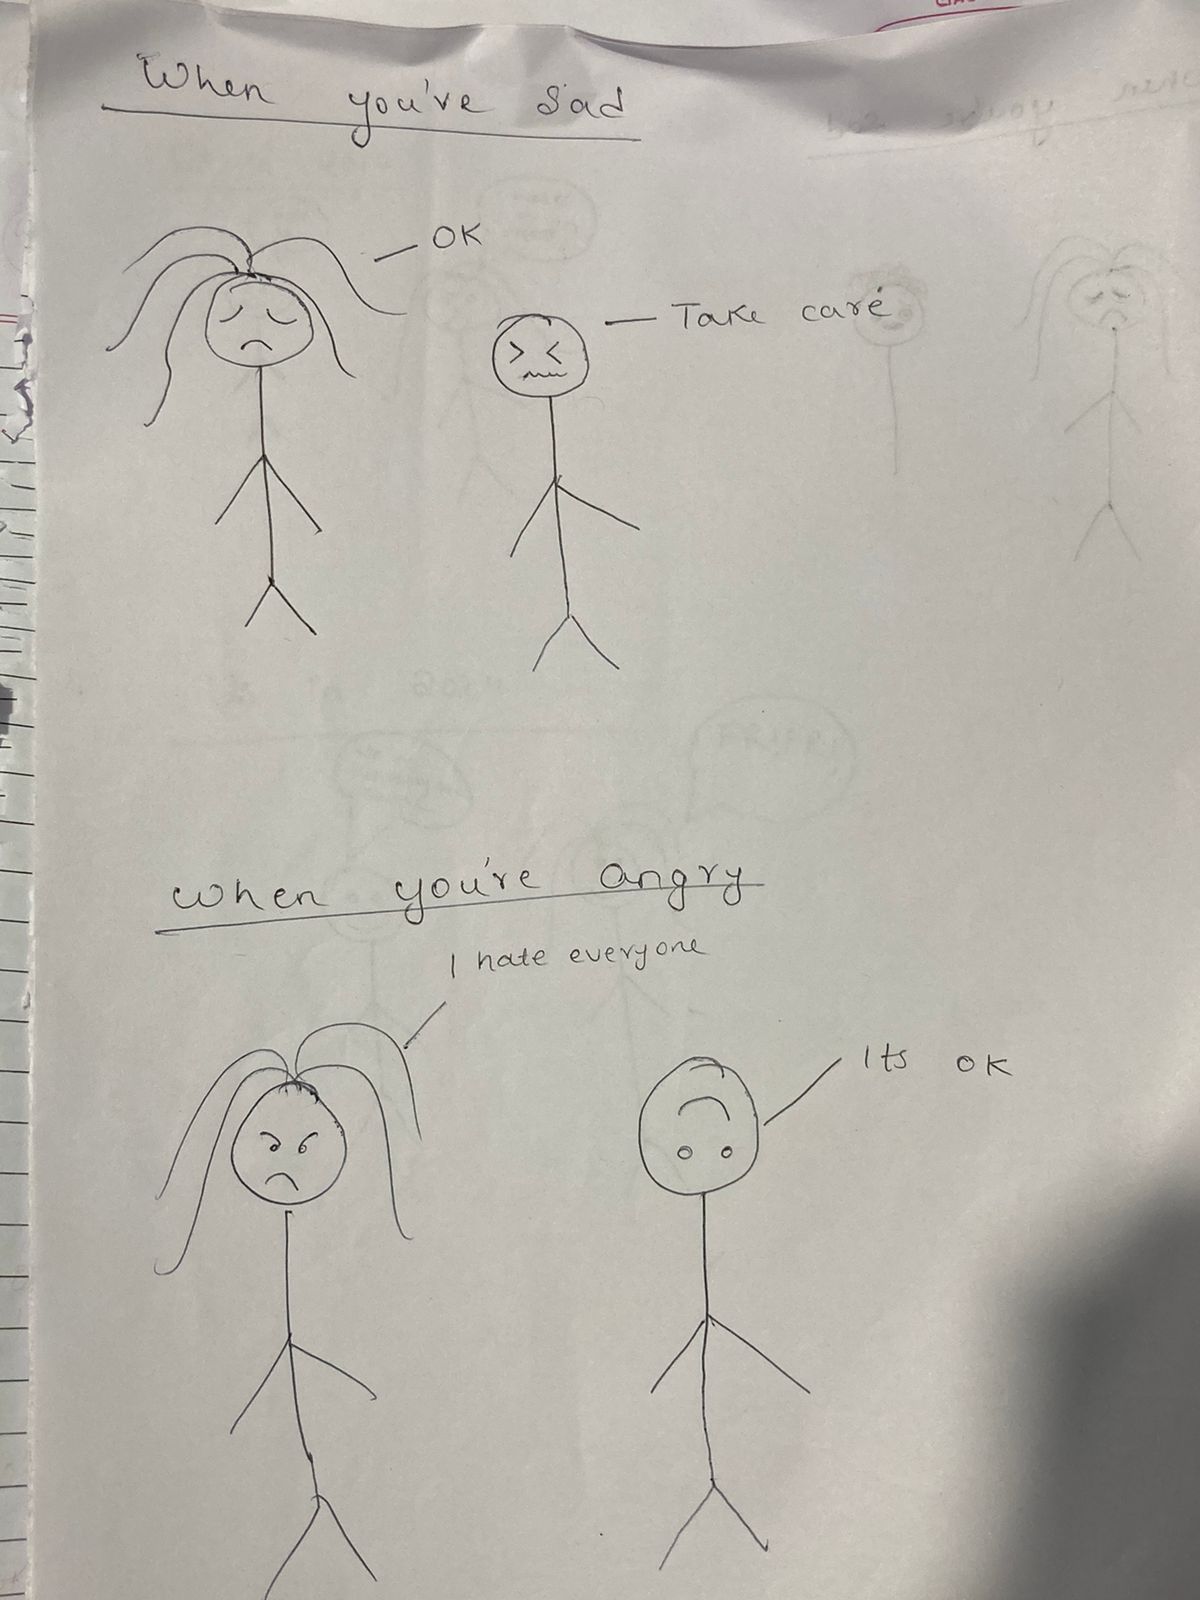 When you've Sad
OK
Take care
When you're angry
I hate everyone
Its OK